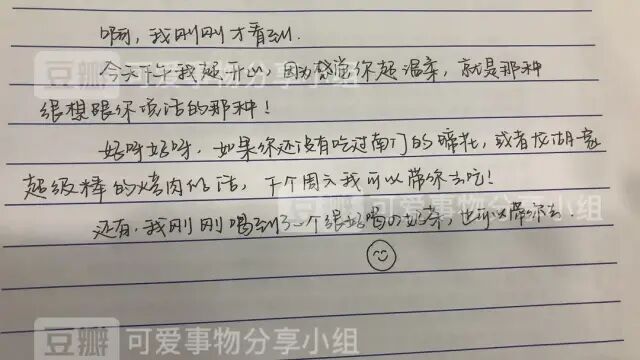 啊，我刚刚才看到.
今天下午我超开心，因为感觉你超温柔，就是那种
很想跟你说话的那种！
好呀好呀，如果你还没有吃过南门的蹄花，或者龙湖
超级棒的烤肉的话，下个周六我可以带你去吃！
还有，我刚刚喝到了一个很好喝的奶茶，也可以带你去.
豆瓣 可爱事物分享小组
豆瓣 可爱事物分享小组
豆瓣 可爱事物分享小组